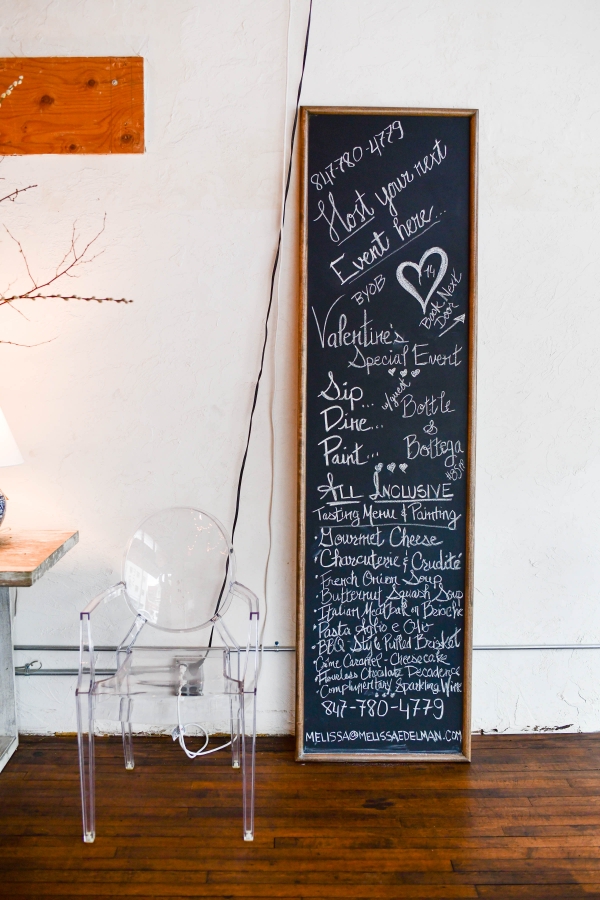 847-780-4779
Host your next
Event here...
BYOB
14
Book Next
Door
Valentine's
Special Event
Sip...
w/guest
Bottle
Dine...
&
Paint...
Bottega
ALL INCLUSIVE
Tasting Menu & Painting
• Gourmet Cheese
Charcuterie & Crudité
• French Onion Soup
• Butternut Squash Soup
• Italian Meatball on Brioche
• Pasta Aglio e Olio
• BBQ Style Pulled Brisket
• Crème Caramel - Cheesecake
• Flourless Chocolate Decadence
• Complimentary Sparkling Wine
847-780-4779
MELISSA@MELISSAEDELMAN.COM